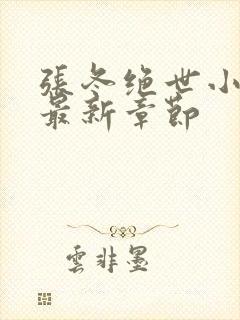 張冬绝世小
最新章節
雲非墨